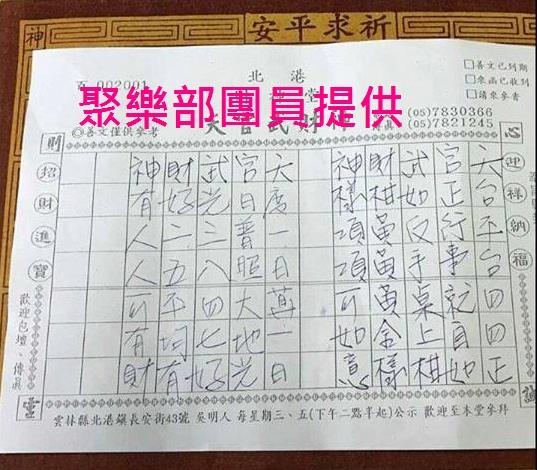 祈求平安
神
北港
№ 002001
堂
聚樂部團員提供
天官武財神
□善文已到期
□來函已收到
□請來參香
(05)7830366
(05)7821245
◎善文僅供參考
天台平台四四正
官正行事就自如
武如反手桌上柑
財柑黃黃黃金樣
神樣項項可如意
天度一日萬一日
官日普照大地光
武光三八四七好
財好二五不均有
神有人人可有財
心
迎祥納福
誠
則
招財進寶
靈
歡迎包壇、傳真
雲林縣北港鎮長安街43號 吳明人 每星期三、五(下午二點半起)公示 歡迎至本堂參拜